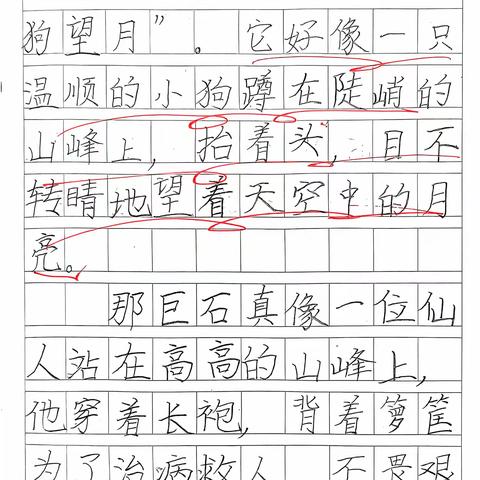 狗望月”。它好像一只
温顺的小狗蹲在陡峭的
山峰上，抬着头，目不
转睛地望着天空中的月
亮。
那巨石真像一位仙
人站在高高的山峰上，
他穿着长袍，背着箩筐
为了治病救人，不畏艰